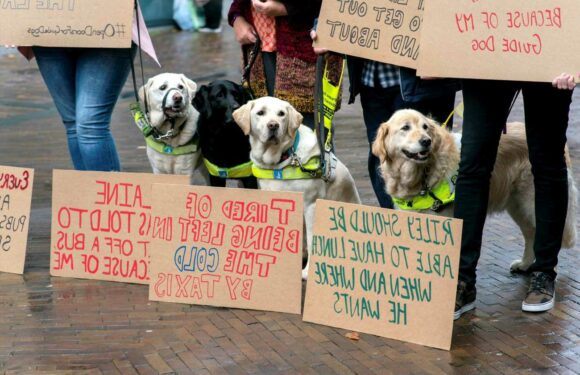 #OpenDoorsForGuideDogs
TO GET OUT
AND ABOUT
BECAUSE OF MY
GUIDE DOG
EVERY
PUBS
LAINE
S TOLD TO
T OFF A BUS
ECAUSE OF ME
TIRED OF
BEING LEFT IN
THE COLD
BY TAXIS
RILEY SHOULD BE
ABLE TO HAVE LUNCH
WHEN AND WHERE
HE WANTS